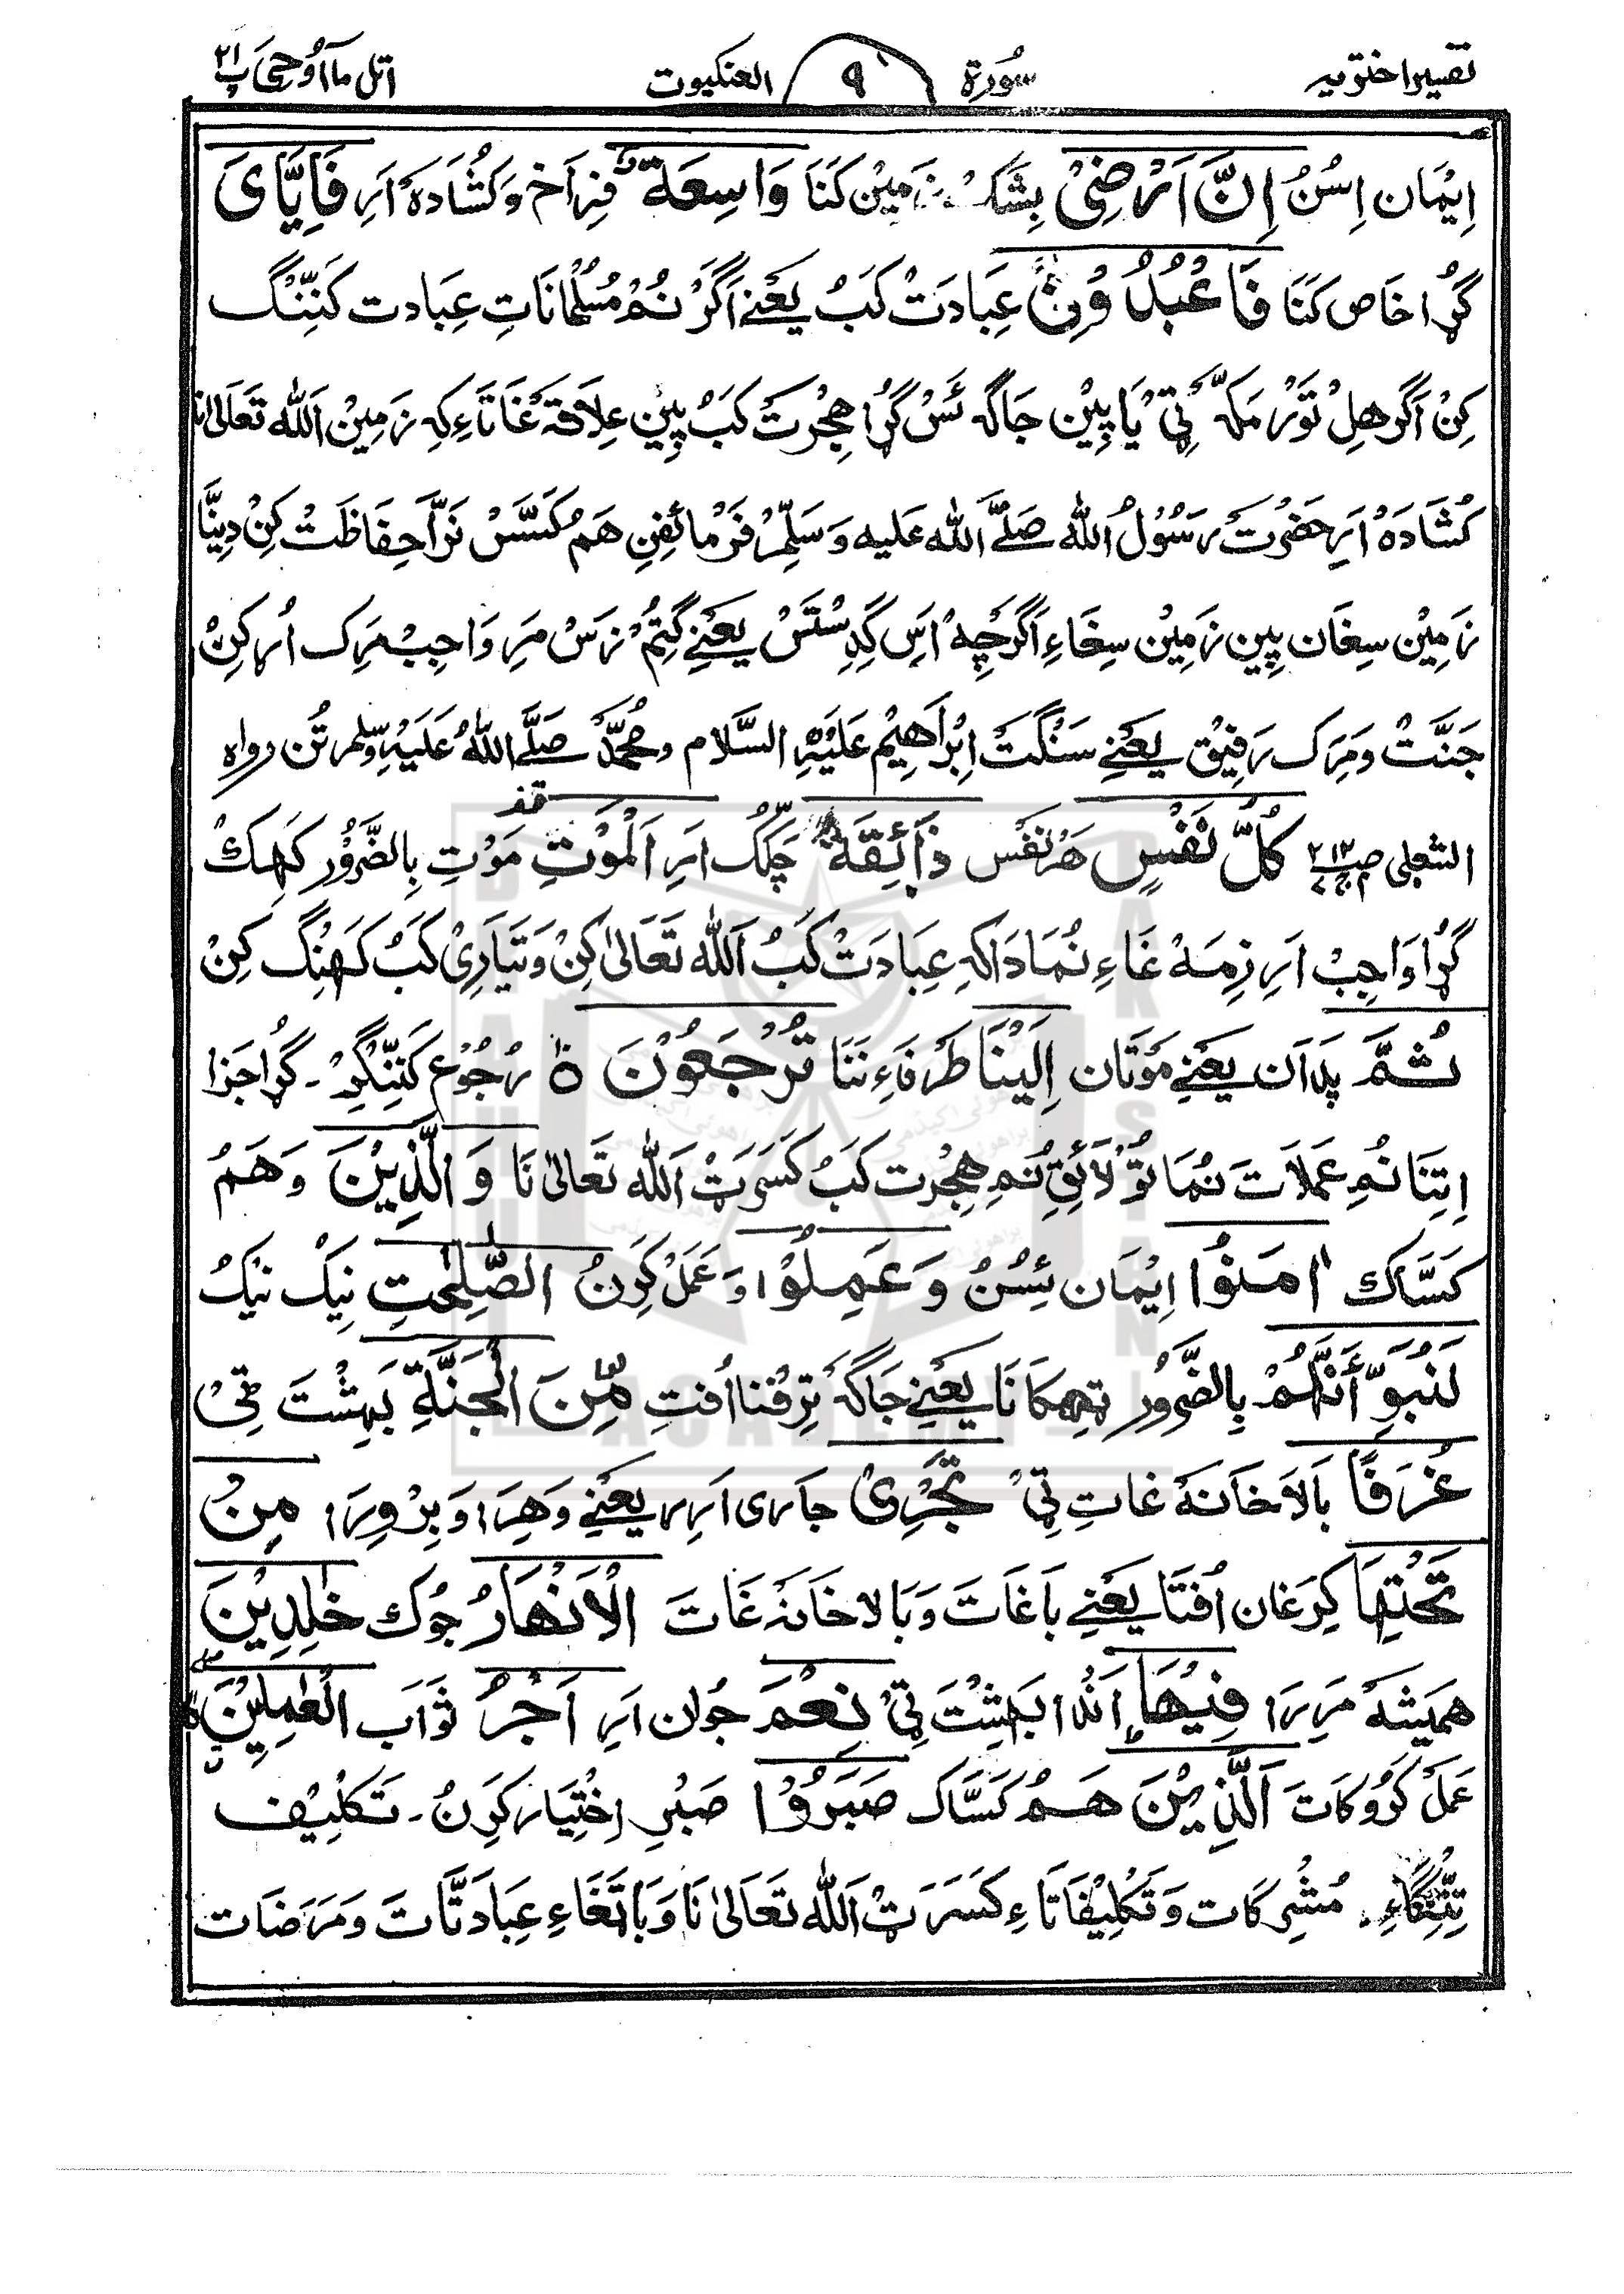 تفسیر اختریہ سُورة ۹ العنکبوت اتل ما اُوحِیَ پ ۲۱
اِیْمَان اِسُنُ اِنَّ اَرْضِیْ بِشَک زَمِیْن کَنَا وَاسِعَةٌ فِرَاخ وَکُشَادَہ اَرِ فَاِیَّایَ
گُڑا خَاص کَنَا فَاعْبُدُوْنِ عِبَادَتْ کَبُ یعْنے اَگَرْ نُمْ مُسْلمانَاتِ عِبادت کَنِنِّنگ
کِنْ اَگر ھِلْ تَوْر مَکہَّ ٹِیْ یَا پِیْن جَاگہ ئَسْ گُڑا ھِجْرتْ کَبُ پِیْن عِلَاقَہ غَاتَاءِ کِہ زَمِیْن اَللہ تَعَالیٰ نا
کُشَادَہ اَرِ حَضْرَت رَسُوْلُ اللہ صَلَّے اللہ عَلیہ وَسَلّمْ فَرْمائفِن ھَمُ کَسَّسْ نَرَّا حِفَاظَتْ کِنْ دِینَا
زَمِیْن سِغَان پِین زَمِیْن سِغَاءِ اَگَرْچِہ اَسِ گِدِسْتَسْ یعْنِے گِتُمْ نَرَسْ مَرِ وَاجِبْ مَرِک اُرکِنْ
جَنَّتْ وَمَرِک رَفِیْق یعْنِے سَنْگَتْ اِبْرَاھِیْم عَلَیْہِ السَّلَام وَمُحَمَّدْ صَلَّے اللہُ عَلَیْہِ وسَّلم تُن رواہ
الثعلبی کُلُّ نَفْسٍ ھَرْنَفْس ذَآئِقَةُ چَکِک اَرِ الْمَوْتِ مَوْتِ بِالضَّرُوْر کَہِکْ
گُڑا وَاجِبْ اَرِ ذِمَہ غَاءِ نُمَا دَاکہِ عِبَادَتْ کَبُ اَللہ تَعَالیٰ کِنْ وَتَیَارِیْ کَبُ کَہِنْگ کِنْ
ثُمَّ پَدَاَن یعْنے مَوْتَان اِلَیْنَا طَرْفَاءِ نَنَا تُرْجَعُوْنَ ہ رُجُوْع کَنِنِّگِرْ ۔ گُڑا جَزا
اِتِنَا نُمِ عَمَلَاتَ نُمَا تَوْ لَائِقِ نُم ھِجْرت کَبُ کَسَرٹْ اَللہ تَعَالیٰ نَا وَالَّذِیْنَ وَھَمُ
کَسَّاک اٰمَنُوْا اِیْمَان ئِسُنُ وَعَمِلُوْا وَعَمَلْ کَرِنُ الصّٰلِحٰتِ نِیَکْ نیْکُ
لَنُبَوِّئَنَّھُمْ بِالضَّرُوْر تِھِکَانَا یعْنِے جَاگہ تِرِفْنا اُفتِ مِّنَ الْجَنَّةِ بَہِشْتَ ٹِیْ
غُرَفًا بَالَاخَانَہْ غاتِ ٹِیْ تَجْرِیْ جاری اَرِر یعْنِے وَھِرَا وَبِرْورَا مِنْ
تَحْتِھَا کِرَغان اُفتَا یعْنِے بَاغَاتَ وَبَالاخَانہ غَات الْاَنْھَارُ جُوْک خٰلِدِیْنَ
ھَمِیْشَہْ مَرِرَا فِیْھَا اَنْدا بَہِشْتَ ٹِیْ نِعْمَ جُوان اَرِ اَجْرُ ثَوَاب الْعٰمِلِیْنَ
عَمَلْ کَرُوکَاتَ اَلَّذِیْنَ ھَمُ کَسَّاک صَبَرُوْا صَبْرِ اِخْتِیَار کَرِنُ ۔ تَکْلِیْف
تِنِنْگاءِ مُشْرِکَات وَتَکْلِیْفَاتَاءِ کَسَرَٹْ اَللہ تَعَالیٰ نَا وَبَاتَغَاءِ عِبَادَتَّاتَ وَمَرَضَات